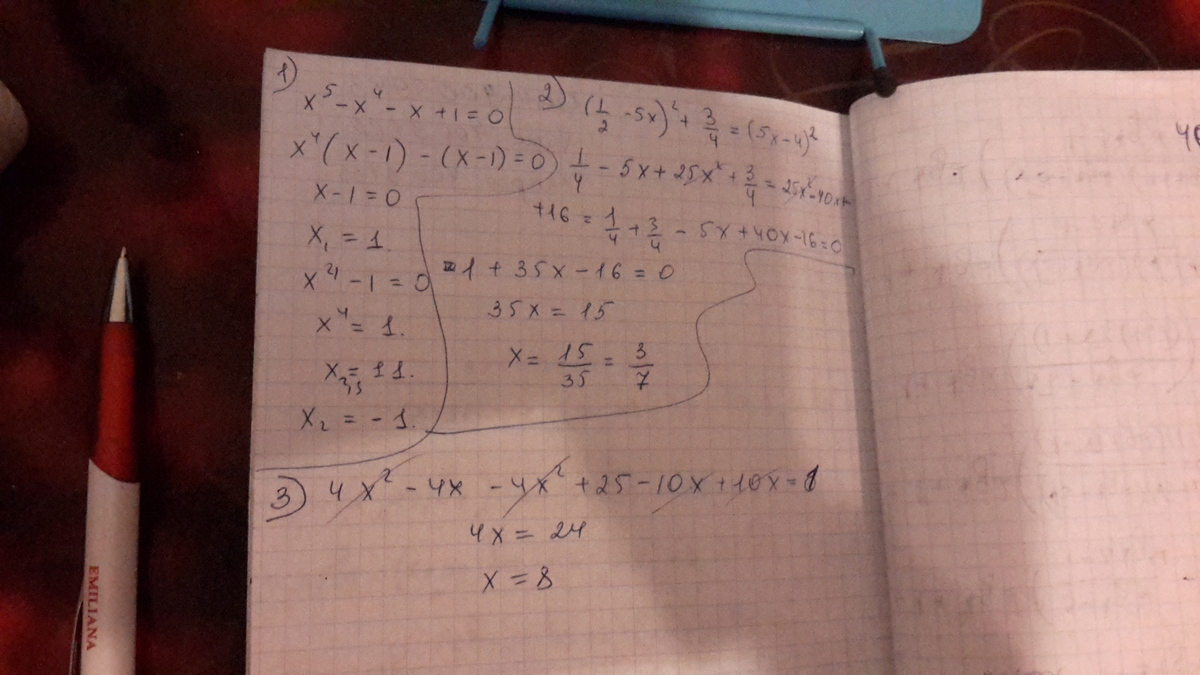 1)
x⁵ - x⁴ - x + 1 = 0
x⁴(x-1) - (x-1) = 0
x-1 = 0
x₁ = 1.
x⁴ - 1 = 0
x⁴ = 1.
x₂,₃ = 11.
x₂ = -1.
2) (1/2 - 5x)² + 3/4 = (5x-4)²
1/4 - 5x + 25x² + 3/4 = 25x² - 40x +
+16 = 1/4 + 3/4 - 5x + 40x - 16 = 0
1 + 35x - 16 = 0
35x = 15
x = 15/35 = 3/7
3) 4x² - 4x - 4x² + 25 - 10x + 10x = 1
4x = 24
x = 8
EMILIANA